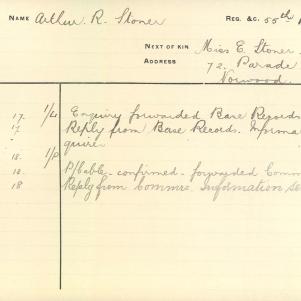 NAME Arthur. R. Stoner
REG. &C. 55th
NEXT OF KIN Miss E. Stoner
ADDRESS 72. Parade
Norwood.
17. Enquiry forwarded Base Records
17 Reply from Base Records.
18.
P/Cable- confirmed- forwarded Comm
18 Reply from Commrs. Information